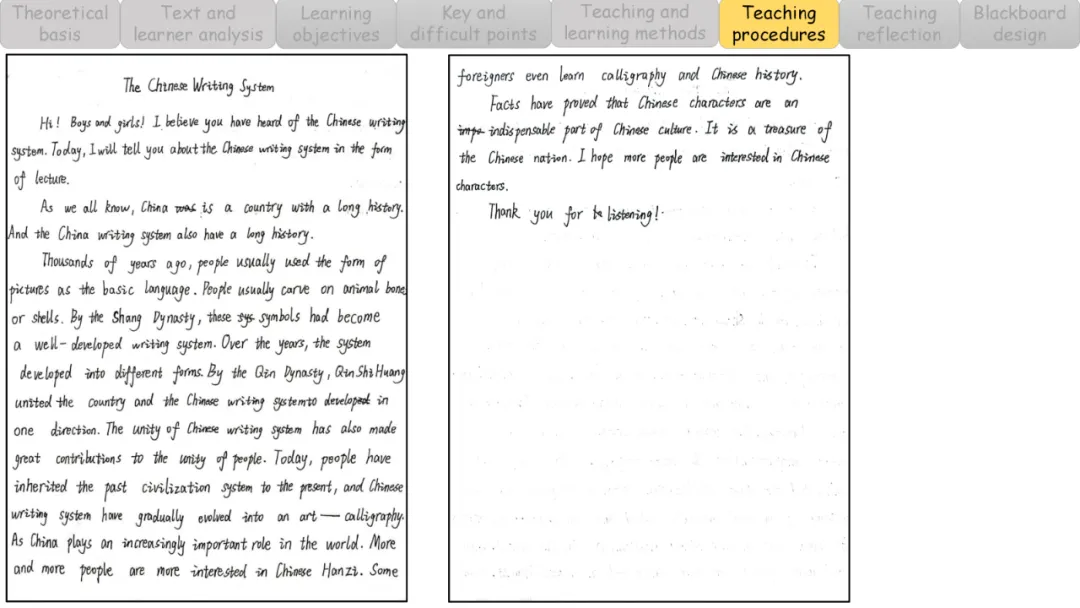 Theoretical basis
Text and learner analysis
Learning objectives
Key and difficult points
Teaching and learning methods
Teaching procedures
Teaching reflection
Blackboard design
The Chinese Writing System
Hi! Boys and girls! I believe you have heard of the Chinese writing
system. Today, I will tell you about the Chinese writing system in the form
of lecture.
As we all know, China was is a country with a long history.
And the China writing system also have a long history.
Thousands of years ago, people usually used the form of
pictures as the basic language. People usually carve on animal bone
or shells. By the Shang Dynasty, these sys symbols had become
a well-developed writing system. Over the years, the system
developed into different forms. By the Qin Dynasty, Qin Shi Huang
united the country and the Chinese writing system to developed in
one direction. The unity of Chinese writing system has also made
great contributions to the unity of people. Today, people have
inherited the past civilization system to the present, and Chinese
writing system have gradually evolved into an art — calligraphy.
As China plays an increasingly important role in the world. More
and more people are more interested in Chinese Hanzi. Some
foreigners even learn calligraphy and Chinese history.
Facts have proved that Chinese characters are an
impo indispensable part of Chinese culture. It is a treasure of
the Chinese nation. I hope more people are interested in Chinese
characters.
Thank you for listening!